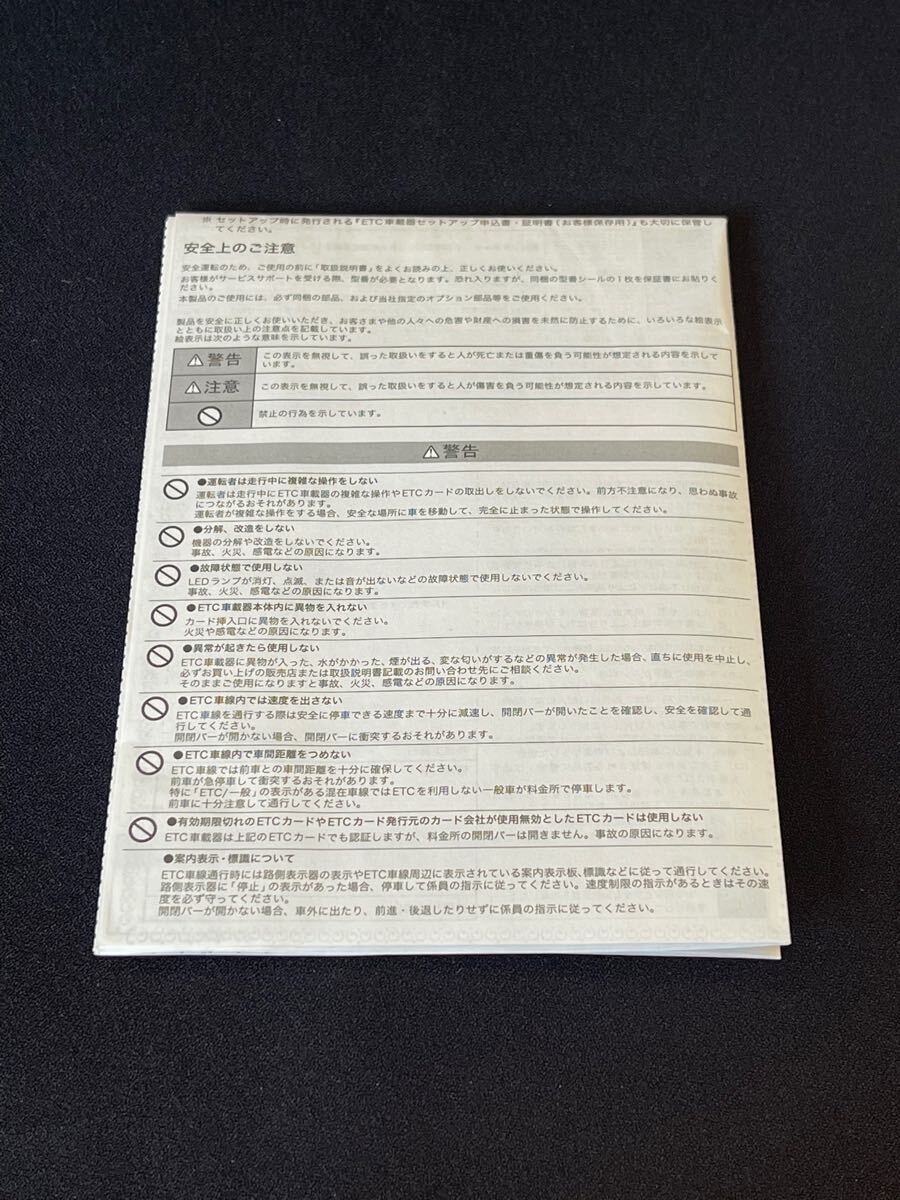 ※ セットアップ時に発行される『ETC車載器セットアップ申込書・証明書(お客様保存用)』も大切に保管し
てください。
安全上のご注意
安全運転のため、ご使用の前に「取扱説明書」をよくお読みの上、正しくお使いください。
お客様がサービスサポートを受ける際、型番が必要となります。恐れ入りますが、同梱の型番シールの1枚を保証書にお貼りく
ださい。
本製品のご使用には、必ず同梱の部品、および当社指定のオプション部品等をご使用ください。
製品を安全に正しくお使いいただき、お客さまや他の人々への危害や財産への損害を未然に防止するために、いろいろな絵表示
とともに取扱い上の注意点を記載しています。
絵表示は次のような意味を示しています。
⚠警告
この表示を無視して、誤った取扱いをすると人が死亡または重傷を負う可能性が想定される内容を示して
います。
⚠注意
この表示を無視して、誤った取扱いをすると人が傷害を負う可能性が想定される内容を示しています。
禁止の行為を示しています。
⚠警告
●運転者は走行中に複雑な操作をしない
運転者は走行中にETC車載器の複雑な操作やETCカードの取出しをしないでください。前方不注意になり、思わぬ事故
につながるおそれがあります。
運転者が複雑な操作をする場合、安全な場所に車を移動して、完全に止まった状態で操作してください。
●分解、改造をしない
機器の分解や改造をしないでください。
事故、火災、感電などの原因になります。
●故障状態で使用しない
LEDランプが消灯、点滅、または音が出ないなどの故障状態で使用しないでください。
事故、火災、感電などの原因になります。
●ETC車載器本体内に異物を入れない
カード挿入口に異物を入れないでください。
火災や感電などの原因になります。
●異常が起きたら使用しない
ETC車載器に異物が入った、水がかかった、煙が出る、変な匂いがするなどの異常が発生した場合、直ちに使用を中止し、
必ずお買い上げの販売店または取扱説明書記載のお問い合わせ先にご相談ください。
そのままご使用になりますと事故、火災、感電などの原因になります。
●ETC車線内では速度を出さない
ETC車線を通行する際は安全に停車できる速度まで十分に減速し、開閉バーが開いたことを確認し、安全を確認して通
行してください。
開閉バーが開かない場合、開閉バーに衝突するおそれがあります。
●ETC車線内で車間距離をつめない
ETC車線では前車との車間距離を十分に確保してください。
前車が急停車して衝突するおそれがあります。
特に「ETC/一般」の表示がある混在車線ではETCを利用しない一般車が料金所で停車します。
前車に十分注意して通行してください。
●有効期限切れのETCカードやETCカード発行元のカード会社が使用無効としたETCカードは使用しない
ETC車載器は上記のETCカードでも認証しますが、料金所の開閉バーは開きません。事故の原因になります。
●案内表示・標識について
ETC車線通行時には路側表示器の表示やETC車線周辺に表示されている案内表示板、標識などに従って通行してください。
路側表示器に「停止」の表示があった場合、停車して係員の指示に従ってください。速度制限の指示があるときはその速
度を必ず守ってください。
開閉バーが開かない場合、車外に出たり、前進・後退したりせずに係員の指示に従ってください。